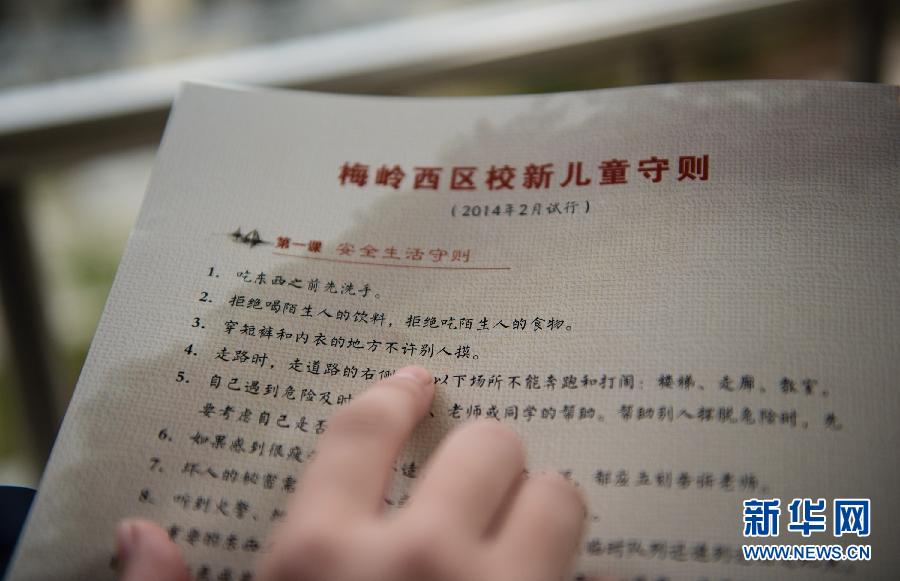 梅岭西区校新儿童守则
（2014年2月试行）
第一课 安全生活守则
1. 吃东西之前先洗手。
2. 拒绝喝陌生人的饮料，拒绝吃陌生人的食物。
3. 穿短裤和内衣的地方不许别人摸。
4. 走路时，走道路的右侧 以下场所不能奔跑和打闹：楼梯、走廊、教室。
5. 自己遇到危险及时 、老师或同学的帮助。帮助别人摆脱危险时，先
要考虑自己是否
6. 如果感到很 都应立刻告诉老师。
7. 坏人的秘密需
8. 听到火警、 临时队列
重要的东西
新华网
WWW.NEWS.CN